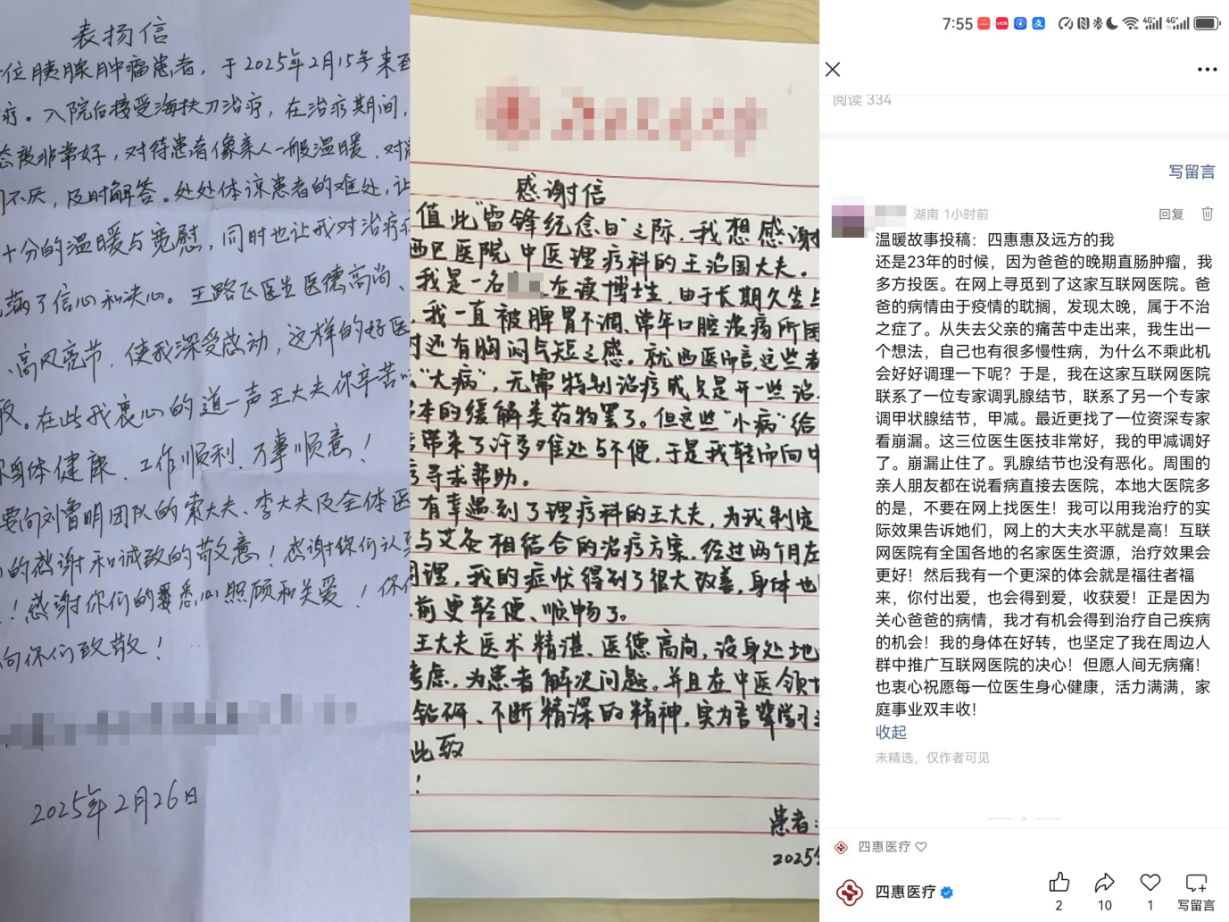 表扬信
位胰腺肿瘤患者，于2025年2月15号来到
疗。入院后接受海扶刀治疗，在治疗期间，
态度非常好，对待患者像亲人一般温暖，对
问不厌，及时解答。处处体谅患者的难处，让
十分的温暖与宽慰，同时也让我对治疗
满了信心和决心。王路飞医生医德高尚、
、高风亮节，使我深受感动，这样的好医
敬。在此我衷心的道一声王大夫你辛苦
身体健康、工作顺利、万事顺意！
要向刘鲁明团队的索大夫、李大夫及全体医
的感谢和诚致的敬意！感谢你们认真
！感谢你们的悉心照顾和关爱！你们
向你们致敬！
2025年2月26日
感谢信
值此“雷锋纪念日”之际，我想感谢
西区医院中医理疗科的王治国大夫。
我是一名 在读博士生，由于长期久坐与
，我一直被脾胃不调、常年口腔溃疡所困
时还有胸闷气短之感。就西医而言这些者
“大病”，无需特别治疗或只是开一些治
本的缓解类药物罢了。但这些“小病”给
带来了许多难处与不便，于是我转而向中
寻求帮助。
有幸遇到了理疗科的王大夫，为我制定
与艾灸相结合的治疗方案，经过两个月左
调理，我的症状得到了很大改善，身体也
前更轻便、顺畅了。
王大夫医术精湛、医德高尚，设身处地
考虑，为患者解决问题。并且在中医领域
钻研、不断精深的精神，实为吾辈学习
此致
！
患者：
2025
7:55
阅读 334
写留言
湖南 1小时前
回复
温暖故事投稿：四惠惠及远方的我
还是23年的时候，因为爸爸的晚期直肠肿瘤，我
多方投医。在网上寻觅到了这家互联网医院。爸
爸的病情由于疫情的耽搁，发现太晚，属于不治
之症了。从失去父亲的痛苦中走出来，我生出一
个想法，自己也有很多慢性病，为什么不乘此机
会好好调理一下呢？于是，我在这家互联网医院
联系了一位专家调乳腺结节，联系了另一个专家
调甲状腺结节，甲减。最近更找了一位资深专家
看崩漏。这三位医生医技非常好，我的甲减调好
了。崩漏止住了。乳腺结节也没有恶化。周围的
亲人朋友都在说看病直接去医院，本地大医院多
的是，不要在网上找医生！我可以用我治疗的实
际效果告诉她们，网上的大夫水平就是高！互联
网医院有全国各地的名家医生资源，治疗效果会
更好！然后我有一个更深的体会就是福往者福
来，你付出爱，也会得到爱，收获爱！正是因为
关心爸爸的病情，我才有机会得到治疗自己疾病
的机会！我的身体在好转，也坚定了我在周边人
群中推广互联网医院的决心！但愿人间无病痛！
也衷心祝愿每一位医生身心健康，活力满满，家
庭事业双丰收！
收起
未精选，仅作者可见
四惠医疗
四惠医疗
2
10
1
写留言